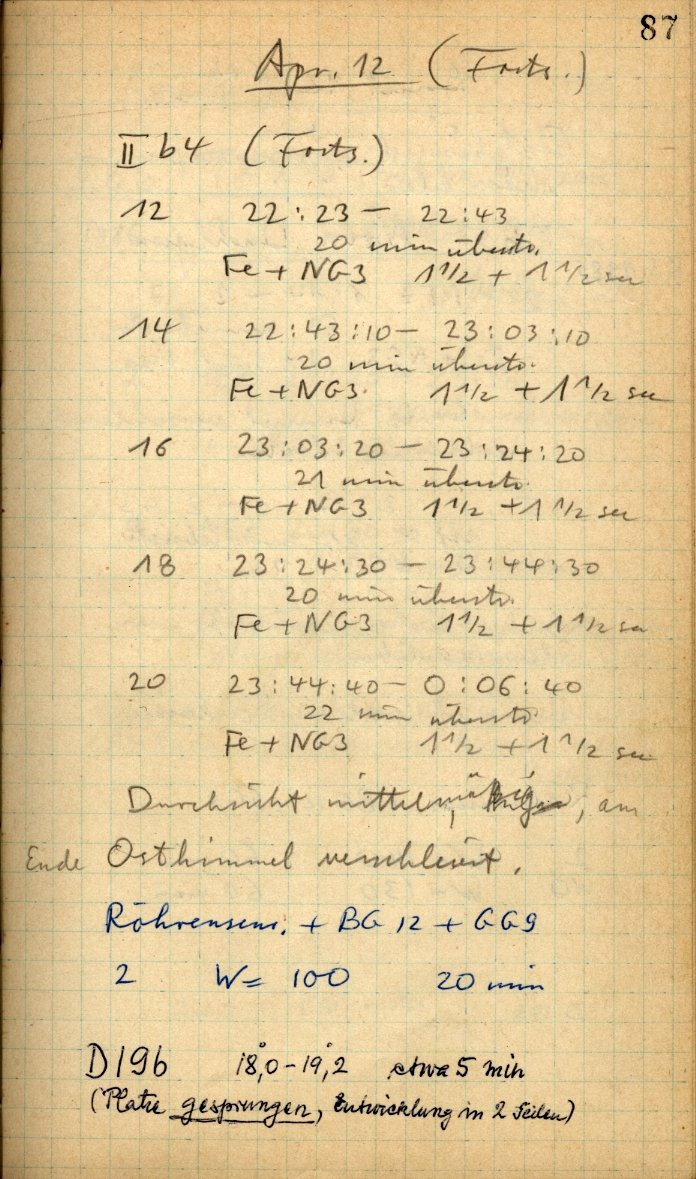 87
Apr. 12 (Forts.)
II b4 (Forts.)
12 22:23 – 22:43
20 min übersto.
Fe + NG3 1 1/2 + 1 1/2 sec
14 22:43:10 – 23:03:10
20 min übersto.
Fe + NG3 1 1/2 + 1 1/2 sec
16 23:03:20 – 23:24:20
21 min übersto.
Fe + NG3 1 1/2 + 1 1/2 sec
18 23:24:30 – 23:44:30
20 min übersto.
Fe + NG3 1 1/2 + 1 1/2 sec
20 23:44:40 – 0:06:40
22 min übersto.
Fe + NG3 1 1/2 + 1 1/2 sec
Durchsicht mittelmäßig, am
Ende Osthimmel verschleiert.
Röhrensens. + BG 12 + GG9
2 W= 100 20 min
D19b 18,°0 – 19,°2 etwa 5 min
(Platte gesprungen, Entwicklung in 2 Teilen)